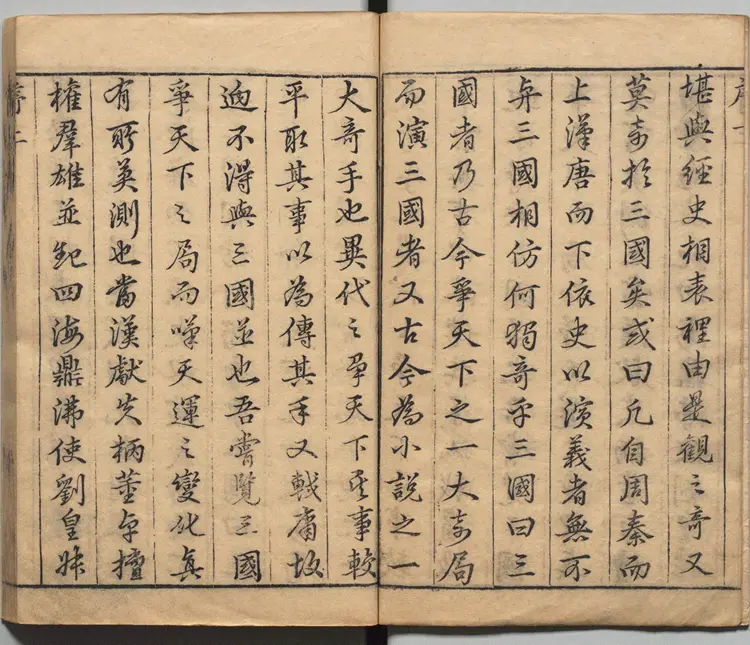 堪與經史相表裡由是觀之奇又
莫奇於三國矣或曰凡自周秦而
上漢唐而下依史以演義者無不
與三國相仿何獨奇乎三國曰三
國者乃古今爭天下之一大奇局
而演三國者又古今為小說之一
大奇手也異代之爭天下其事較
平取其事以為傳其手又較庸故
迥不得與三國並也吾嘗覽三國
爭天下之局而嘆天運之變化真
有所莫測也當漢獻失柄董卓擅
權羣雄並起四海鼎沸使劉皇叔